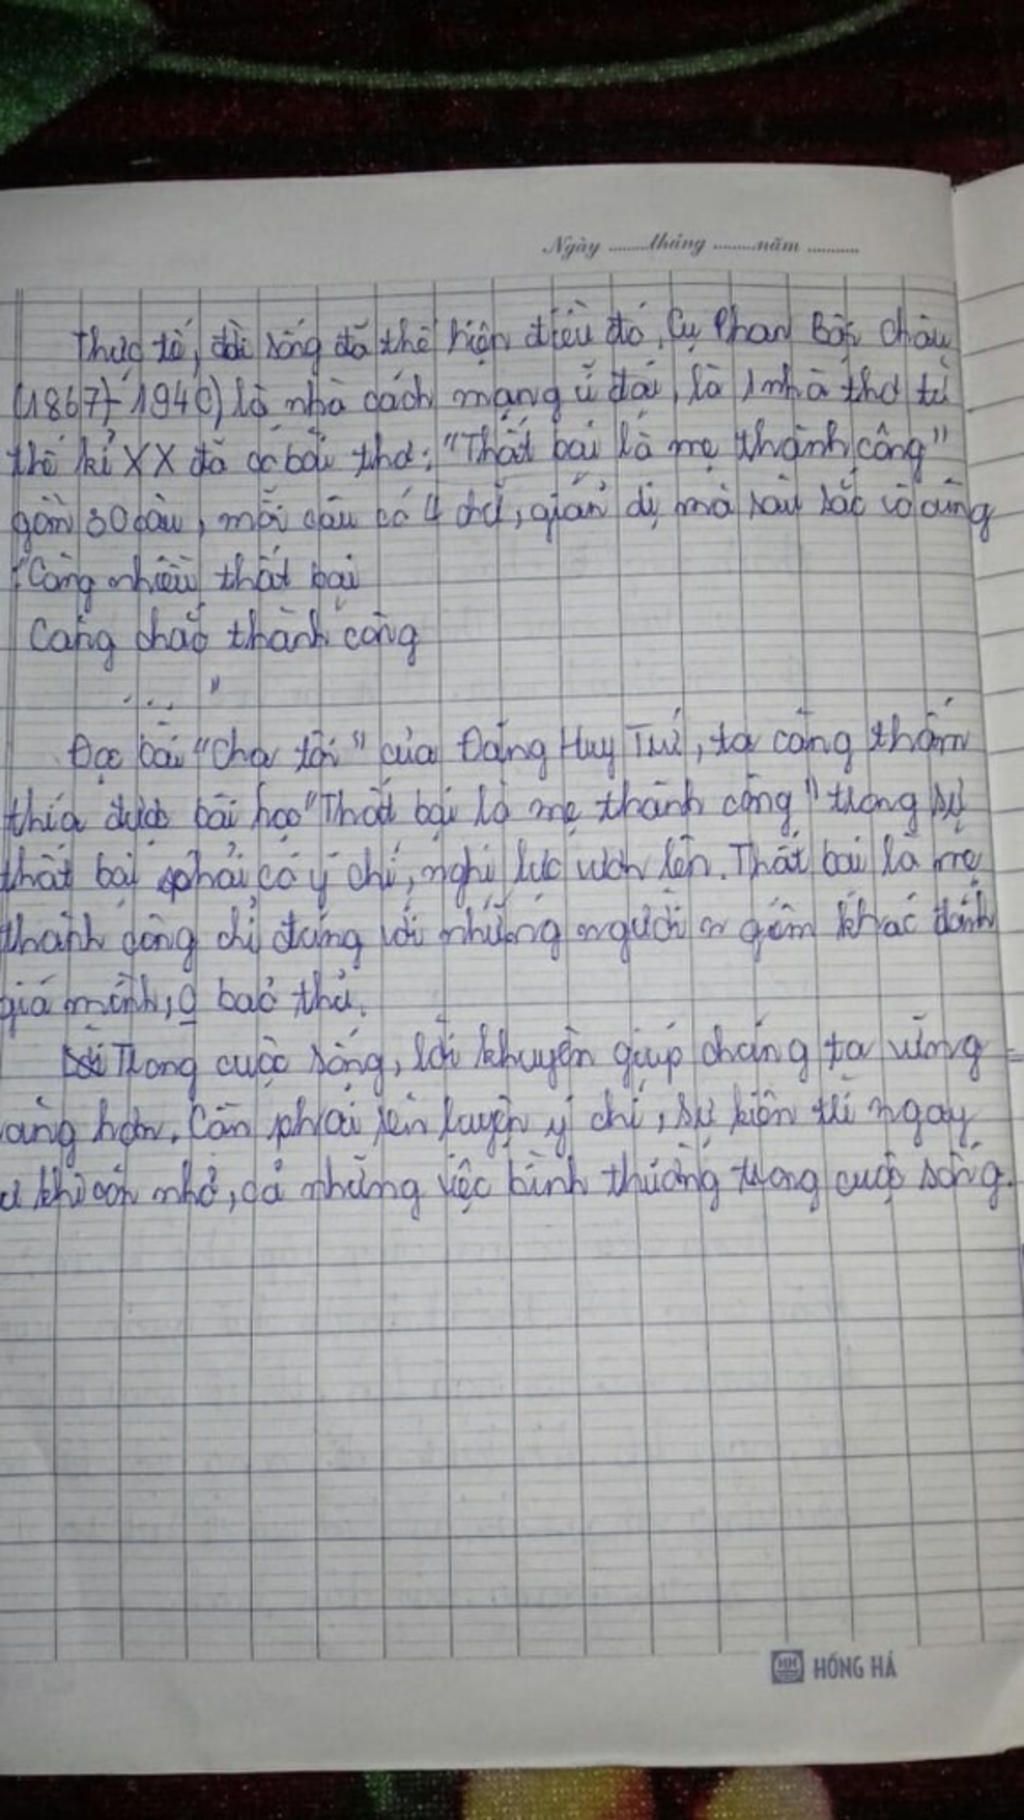 Ngày ........tháng ........năm ..........
Thực tế, đời sống đã thể hiện điều đó. Cụ Phan Bội Châu
(1867-1940) là nhà cách mạng vĩ đại, là 1 nhà thơ từ
thế kỉ XX đã có bài thơ: "Thất bại là mẹ thành công"
gồm 30 câu, mỗi câu có 4 chữ, giản dị mà sâu sắc vô cùng
"Càng nhiều thất bại
Càng chắc thành công
..."
Đọc bài "Cha tôi" của Đặng Huy Trứ, ta càng thấm
thía được bài học "Thất bại là mẹ thành công" trong sự
thất bại phải có ý chí, nghị lực vươn lên. Thất bại là mẹ
thành công chỉ đúng với những người nghiêm khắc đánh
giá mình, 0 bảo thủ.
Trong cuộc sống, lời khuyên giúp chúng ta vững
vàng hơn. Cần phải rèn luyện ý chí, sự kiên trì ngay
từ khi còn nhỏ, cả những việc bình thường trong cuộc sống.
HỒNG HÀ